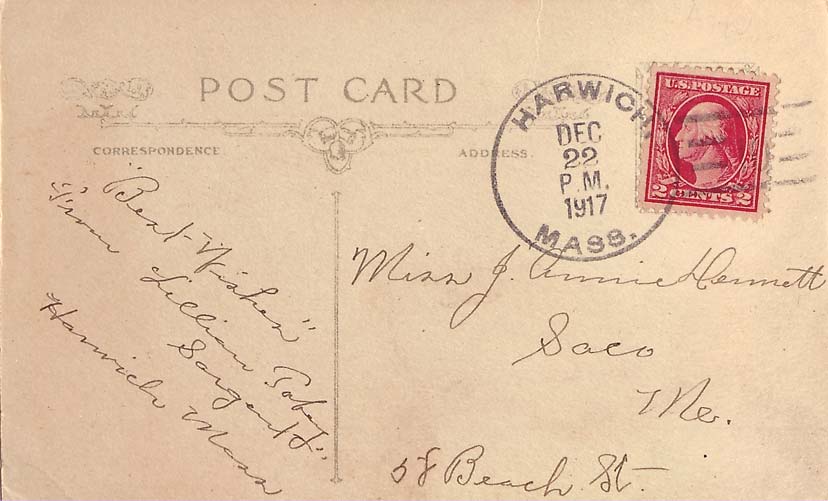 POST CARD
CORRESPONDENCE.
ADDRESS.
"Best Wishes"
"From Lillian Tobey
Sargent"
Harwich Mass
HARWICH,
DEC
22
P.M.
1917
MASS.
U.S. POSTAGE
2 CENTS 2
Miss J. Annie Dennett
Saco
Me.
58 Beach St.